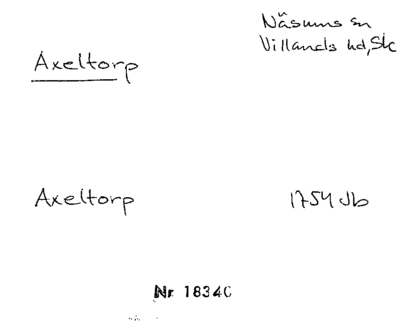 Näsums sn
Villands hd, Sk
Axeltorp
Axeltorp 1754 Jb
Nr 1834C